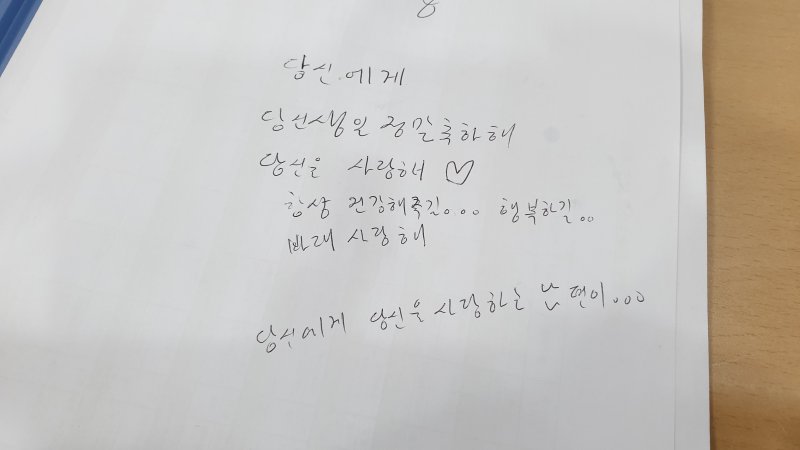 8
당신에게
당신생일 정말축하해
당신을 사랑해 ♡
항상 건강해주길... 행복하길..
바래 사랑해
당신에게 당신을 사랑하는 남편이...